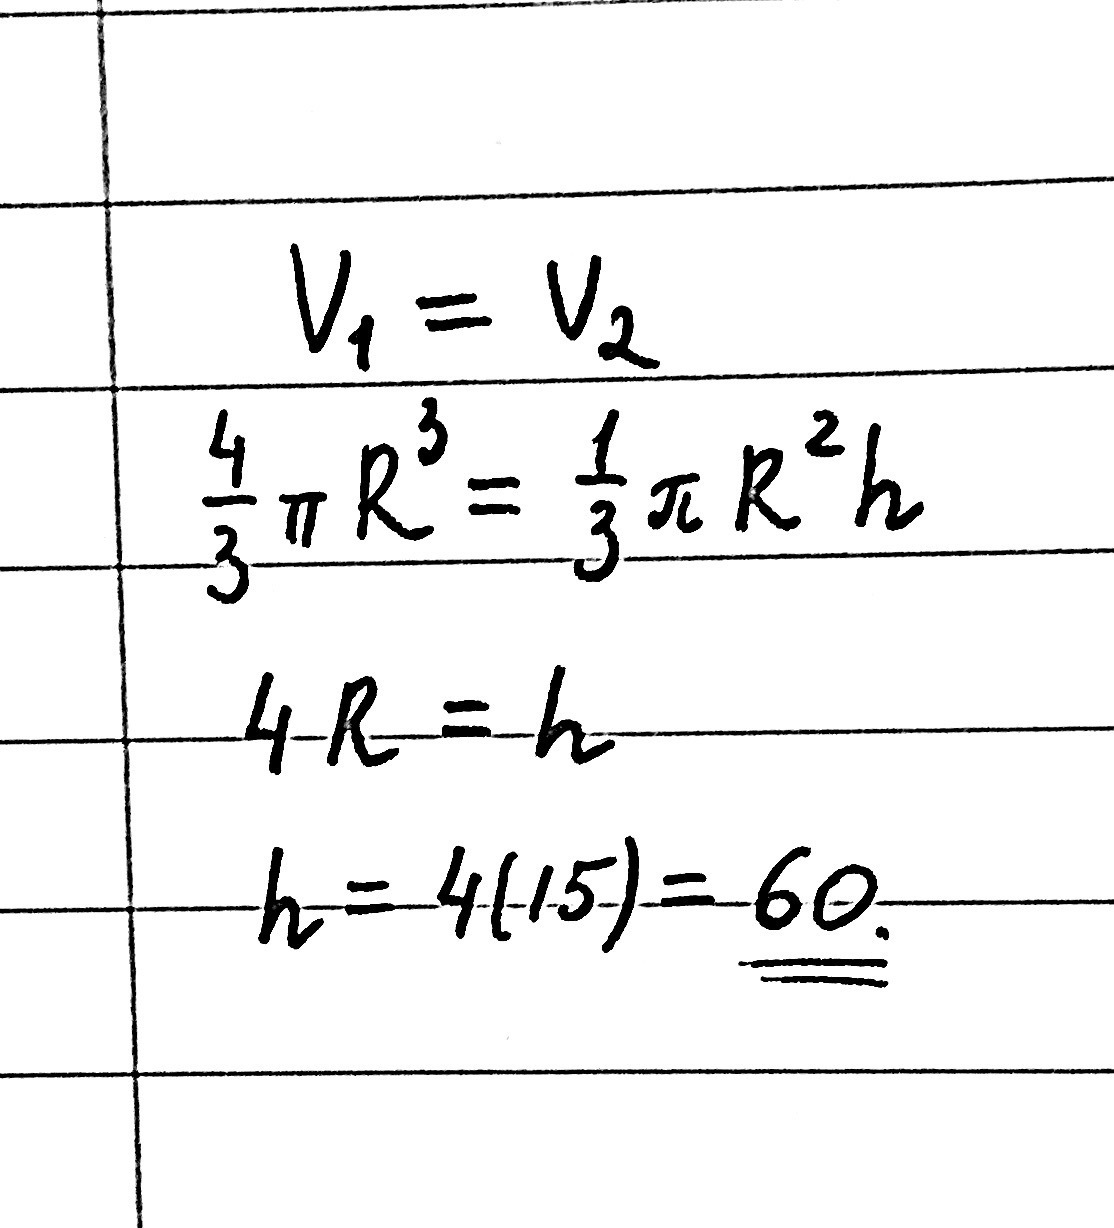 V₁ = V₂
4/3 π R³ = 1/3 π R² h
4 R = h
h = 4(15) = 60.